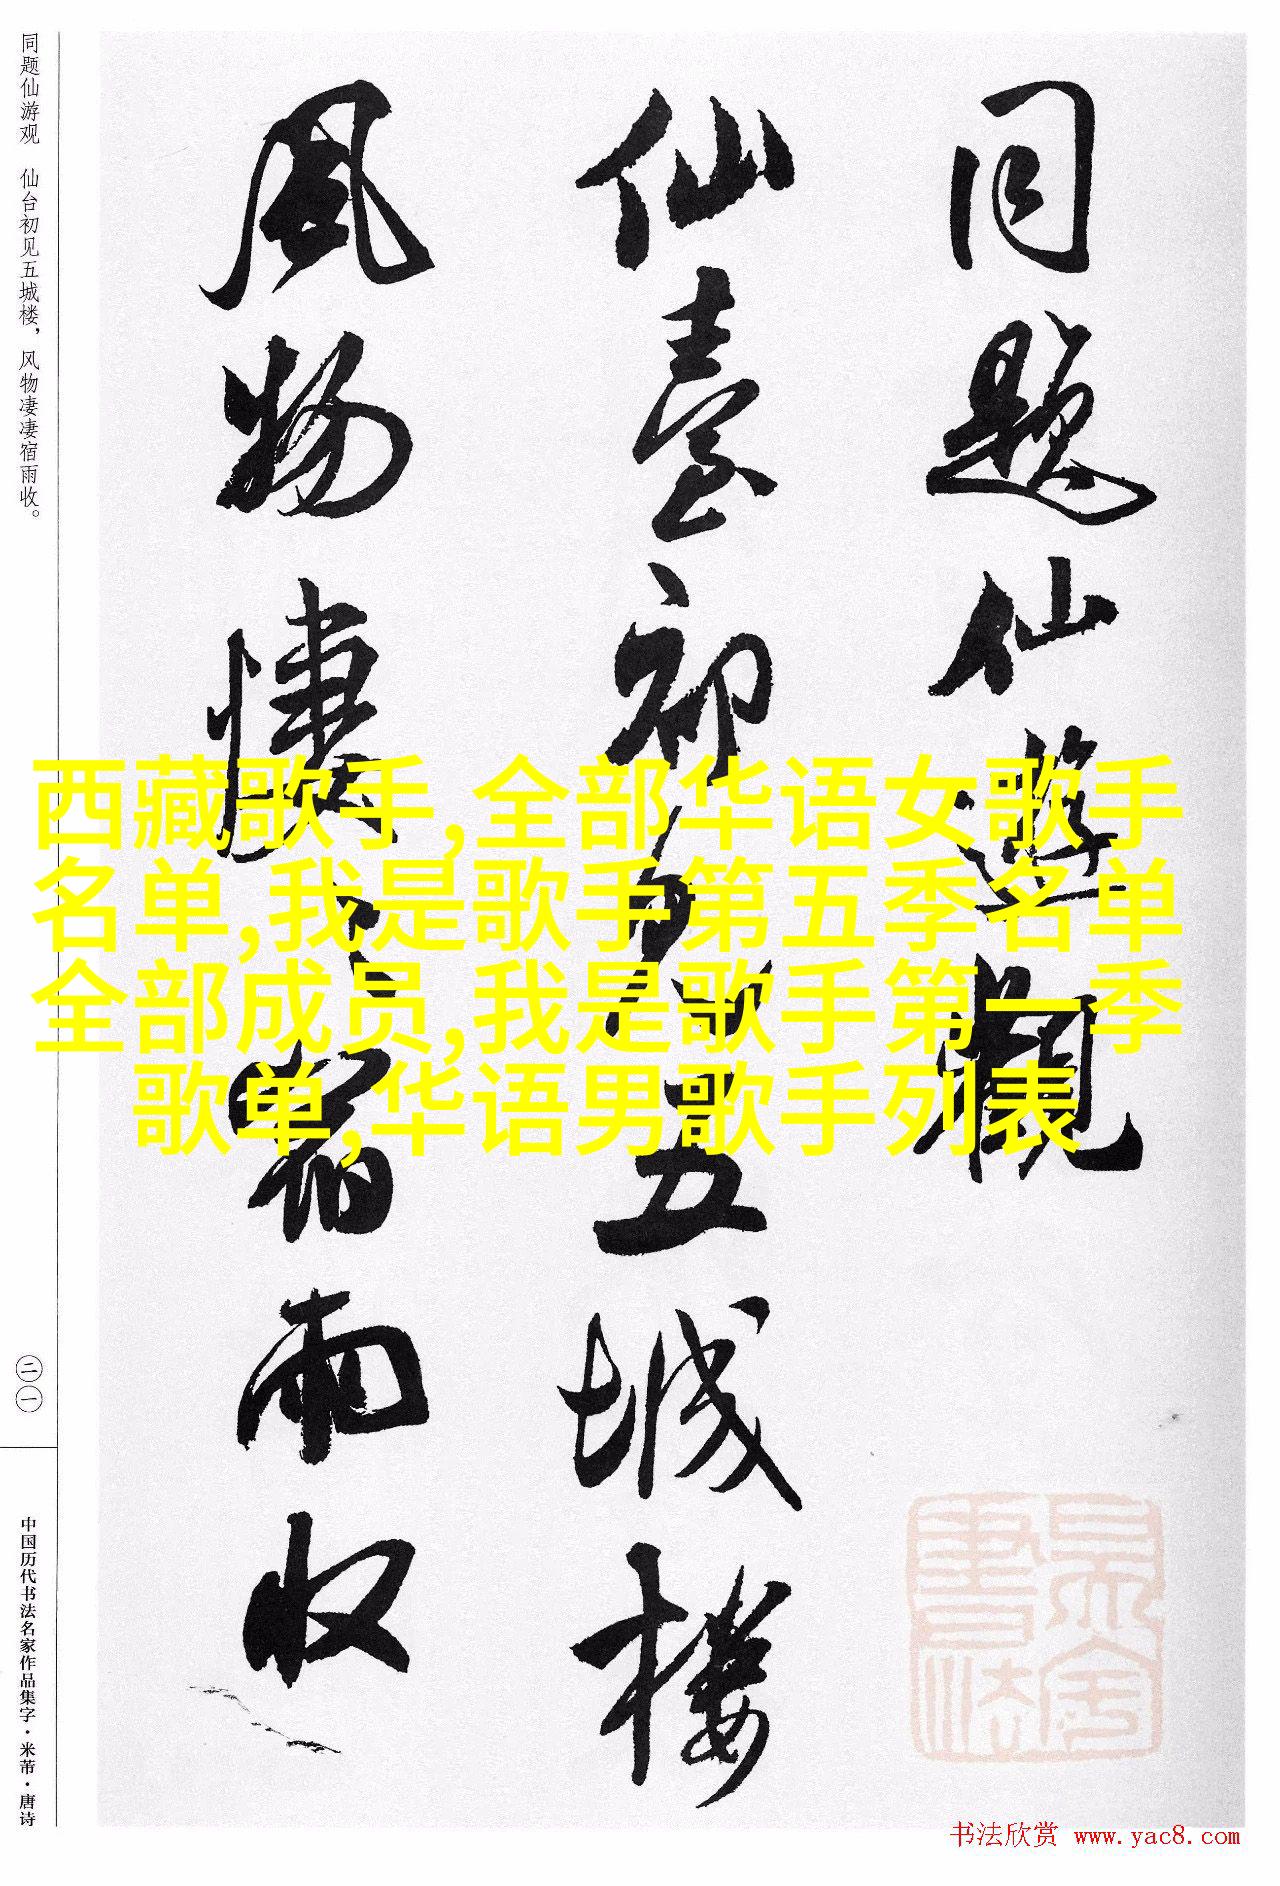 同题仙游观 仙台初见五城楼，风物凄凄宿雨收。
二一
中国历代书法名家作品集字·米芾·唐诗
同题仙遊觀
仙臺初見五城樓
風物悽〻宿雨收
西藏歌手,全部华语女歌手
名单,我是歌手第五季名单
全部成员,我是歌手第一季
歌单,华语男歌手列表
书法欣赏 www.yac8.com